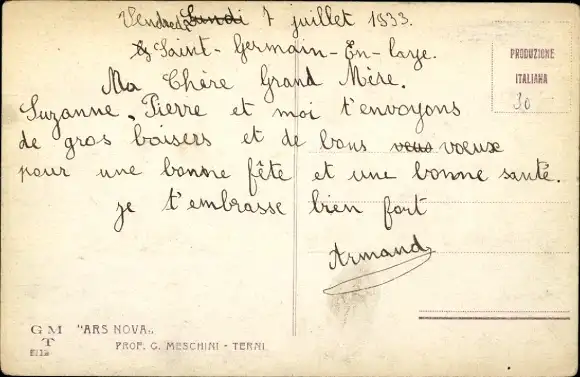 Vendredi Lundi 7 juillet 1933.
Saint-Germain-En-laye.
Ma Chère Grand Mère.
Suzanne, Pierre et moi t'envoyons
de gros baisers et de bons veus voeux
pour une bonne fête et une bonne santé.
je t'embrasse bien fort
Armand
PRODUZIONE
ITALIANA
30
GMT
"ARS NOVA„
PROF. G. MESCHINI - TERNI